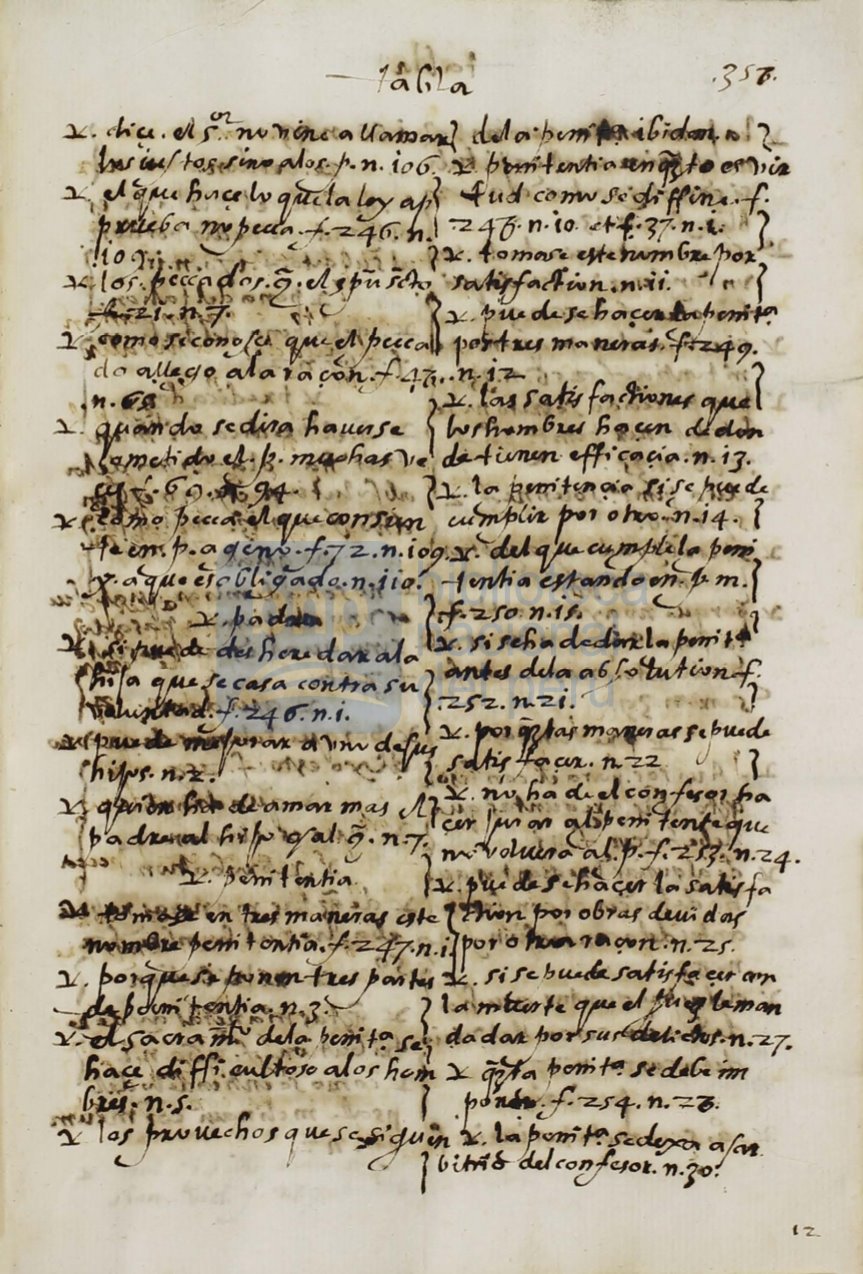 tabla
.356.
v. diçe. el s.or no vine a llamar
los iustos sino a los. p. n. 106.
v. el que haçe lo que la ley ap
prueba no pecca. f. 246. n.
109.
v. los. peccados. q̃. el spũ sc̃to
f. 21. n. 7.
v. como se conosce que el pecca
do allego a la raçon. f. 43.
n. 68
v. quando se dira hauerse
cometido el. p. muchas ve
v. como pecca el que consien
te en. p. ageno. f. 72. n. 109.
y. a que es obligado. n. 110.
v. padre
v. si puede desheredar a la
hija que se casa contra su
voluntad. f. 246. n. 1.
v. puede mejorar a vno de sus
hijos. n. 2.
v. quien ha de amar mas el
padre al hijo o al. q̃. n. 7.
v. penitentia
v. tomase en tres maneras este
nombre penitentia. f. 247. n. 1.
v. porque se ponen tres partes
de penitentia. n. 3.
v. el sacram.to de la penit.a se
haçe difficultoso a los hom
bres. n. 5.
v. los prouechos que se siguen
de la penit.a ibidem. n
v. penitentia en q̃to es vir
tud como se diffine. f.
248. n. 10. et f. 37. n. 1.
v. tomase este nombre por
satisfaction. n. 11.
v. puedese haçer la penit.a
por tres maneras. f. 249.
n. 12
v. las satisfactiones que
los hombres haçen de don
de tienen efficaçia. n. 13.
v. la penitençia si se puede
cumplir por otro. n. 14.
v. del que cumple la peni
tentia estando en. p. m.
f. 250. n. 15.
v. si se ha de dar la penit.a
antes de la absolution f.
252. n. 21.
v. por q̃tas maneras se puede
satisfaçer. n. 22
v. no ha de el confesor ha
çer jurar al penitente que
no voluera al. p. f. 253. n. 24.
v. puedese haçer la satisfa
ction por obras deuidas
por otra raçon. n. 25.
v. si se puede satisfaçer con
la muerte que el juez le man
da dar por sus delictos. n. 27.
v. q̃ta penit.a se debe im
poner. f. 254. n. 28.
v. la penit.a se dexa a ar
bitrio del confesor. n. 30.
12